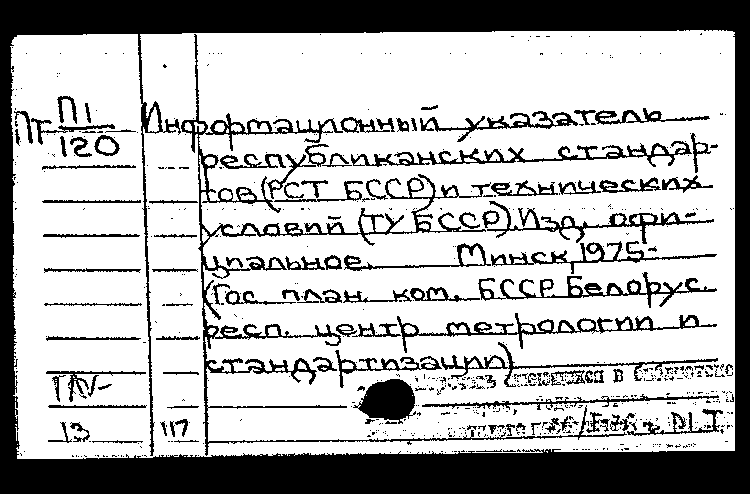 Пт П1/120
Информационный указатель
республиканских стандар-
тов (РСТ БССР) и технических
условий (ТУ БССР). Изд. офи-
циальное. Минск, 1975-
(Гос. план. ком. БССР. Белорус.
респ. центр метрологии и
стандартизации)
в библиотеке
13 117